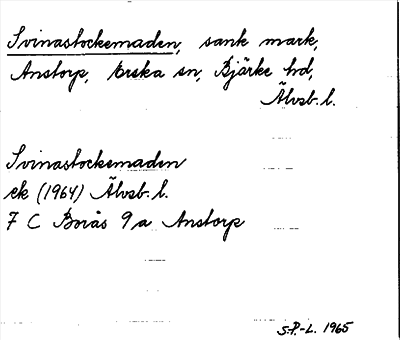 Svinastockemaden, sank mark,
Anstorp, Erska sn, Bjärke hd,
Älvsb. l.
Svinastockemaden
ek (1964) Älvsb. l.
7 C Borås 9 a Anstorp
S.P.-L. 1965